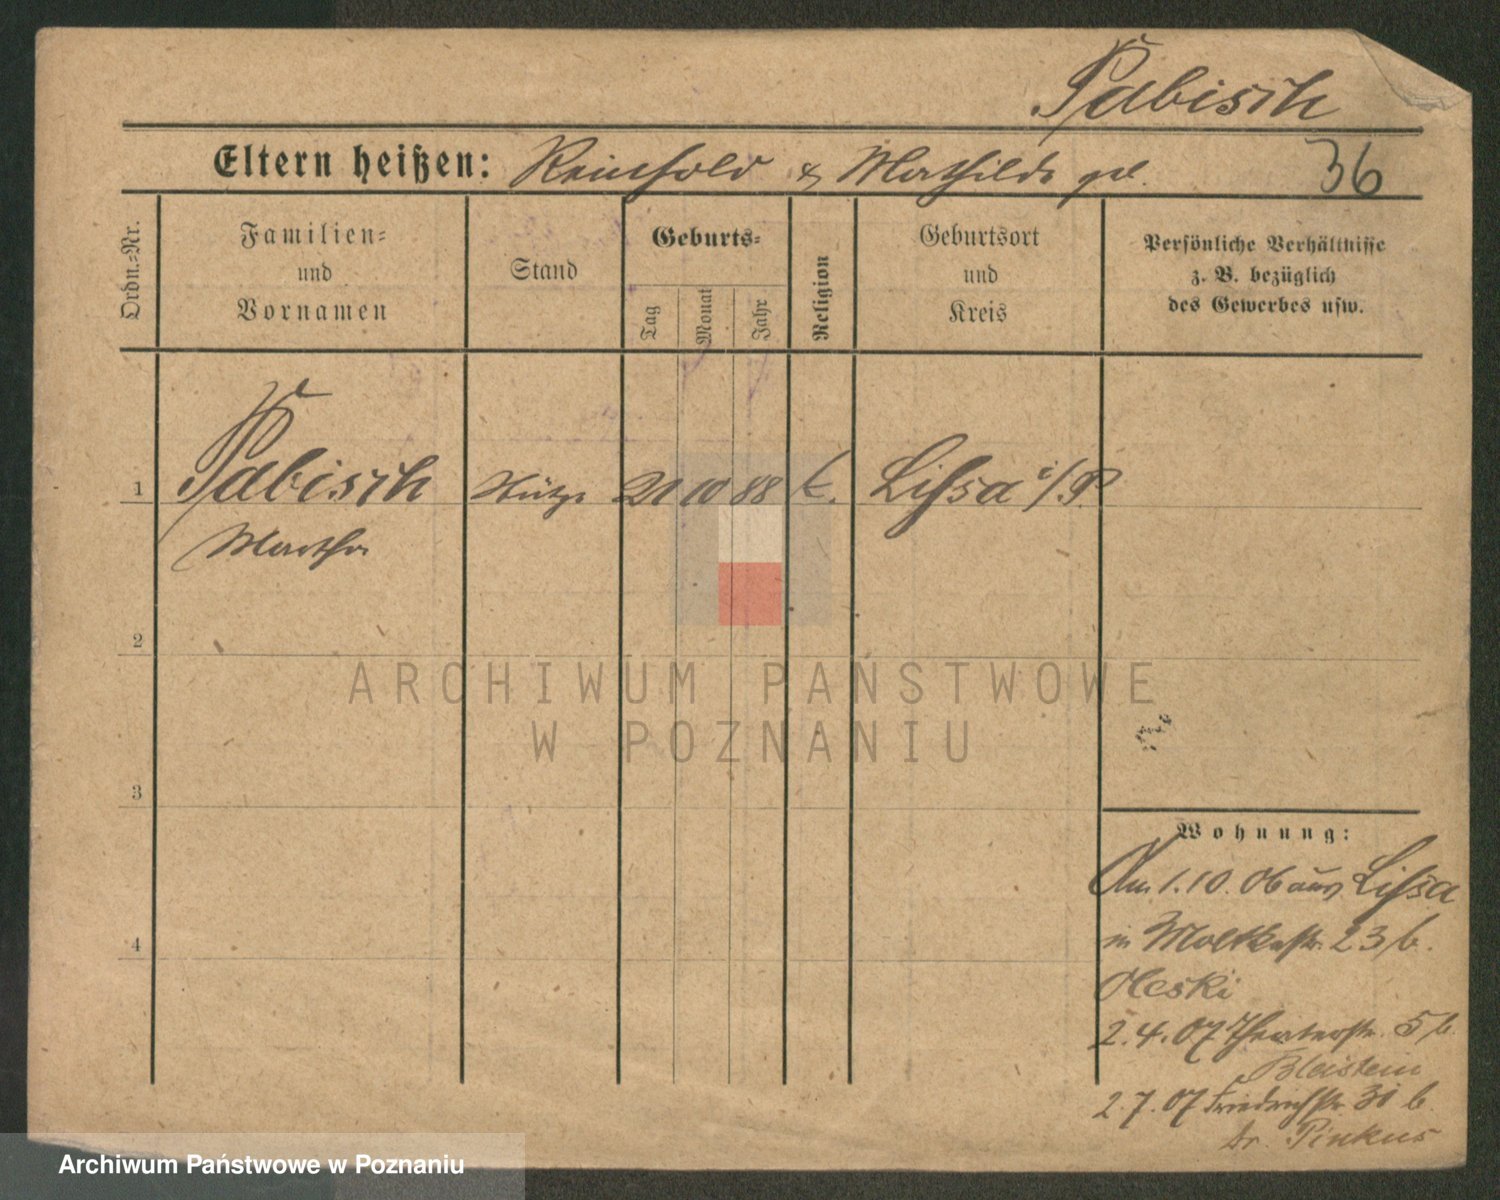 Pabisch
Eltern heißen: Reinhold & Mathilde geb.
36
Ordn.=Nr.
Familien=
und
Vornamen
Stand
Geburts=
Tag
Monat
Jahr
Religion
Geburtsort
und
Kreis
Persönliche Verhältnisse
z. B. bezüglich
des Gewerbes usw.
1
Pabisch
Martha
Stütze
21
10
88
Lissa i/P.
2
3
4
Wohnung:
Am 1.10.06 aus Lissa
in Moltkestr. 23 b.
Oleski
2.4.07 Theaterstr. 5 b.
Bleistein
2.7.07 Friedrichstr. 31 b.
Dr. Pinkus
ARCHIWUM PAŃSTWOWE
W POZNANIU
Archiwum Państwowe w Poznaniu